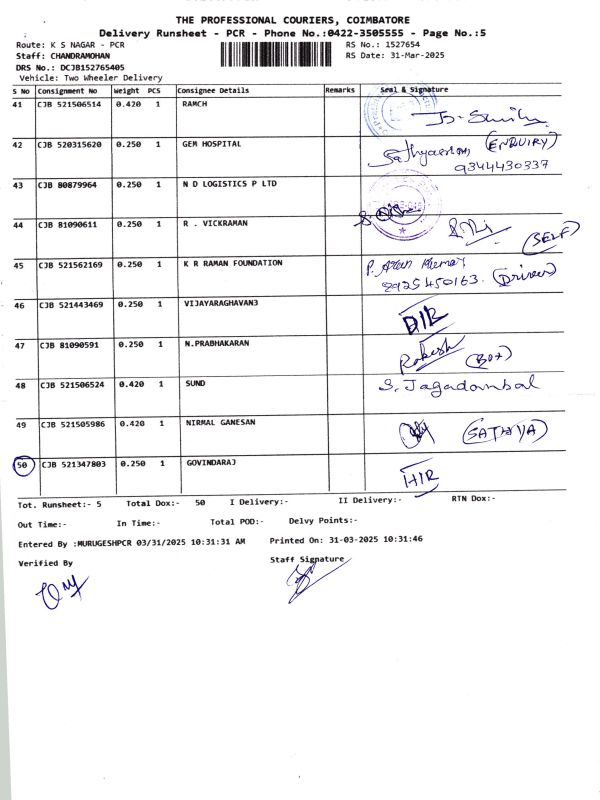 THE PROFESSIONAL COURIERS, COIMBATORE
Delivery Runsheet - PCR - Phone No.:0422-3505555 - Page No.:5
Route: K S NAGAR - PCR RS No.: 1527654
Staff: CHANDRAMOHAN RS Date: 31-Mar-2025
DRS No.: DCJB152765405
Vehicle: Two Wheeler Delivery
S No Consignment No Weight PCS Consignee Details Remarks Seal & Signature
41 CJB 521506514 0.420 1 RAMCH
42 CJB 520315620 0.250 1 GEM HOSPITAL Sathyaseelan (ENQUIRY)
9344430337
43 CJB 80879964 0.250 1 N D LOGISTICS P LTD
44 CJB 81090611 0.250 1 R . VICKRAMAN (SELF)
45 CJB 521562169 0.250 1 K R RAMAN FOUNDATION P. Arun Kumar
8925450163. (Driver)
46 CJB 521443469 0.250 1 VIJAYARAGHAVAN3 DIR
47 CJB 81090591 0.250 1 N.PRABHAKARAN Rakesh (BOX)
48 CJB 521506524 0.420 1 SUND S. Jagadambal
49 CJB 521505986 0.420 1 NIRMAL GANESAN (SATHYA)
50 CJB 521347803 0.250 1 GOVINDARAJ HIR
Tot. Runsheet:- 5 Total Dox:- 50 I Delivery:- II Delivery:- RTN Dox:-
Out Time:- In Time:- Total POD:- Delvy Points:-
Entered By :MURUGESHPCR 03/31/2025 10:31:31 AM Printed On: 31-03-2025 10:31:46
Verified By Staff Signature